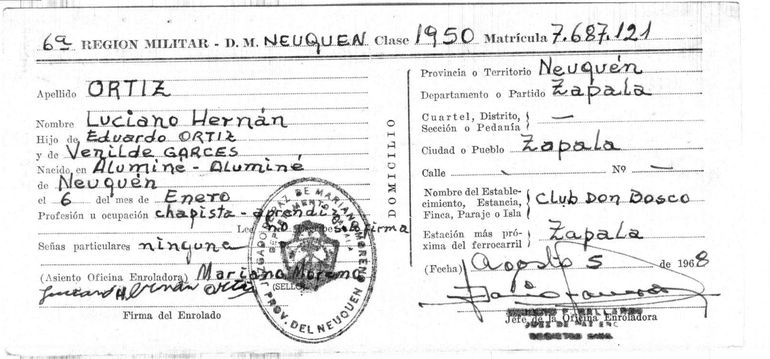 6ª REGION MILITAR - D. M. NEUQUEN Clase 1950 Matrícula 7.687.121
Apellido ORTIZ
Nombre Luciano Hernán
Hijo de Eduardo ORTIZ
y de Venilde GARCES
Nacido en Alumine - Aluminé
de Neuquén
el 6 del mes de Enero
Profesión u ocupación chapista - aprendiz
Lee no firma
Señas particulares ninguna
(Asiento Oficina Enroladora) Mariano Moreno
(SELLO)
Luciano Hernán Ortiz
Firma del Enrolado
JUZGADO DE PAZ DE MARIANO MORENO
DEPARTAMENTO ZAPALA
PROV. DEL NEUQUEN
DOMICILIO
Provincia o Territorio Neuquén
Departamento o Partido Zapala
Cuartel, Distrito,
Sección o Pedanía —
Ciudad o Pueblo Zapala
Calle Nº —
Nombre del Estable-
cimiento, Estancia,
Finca, Paraje o Isla Club Don Bosco
Estación más pró-
xima del ferrocarril Zapala
(Fecha) Agosto 5 de 1968
Jefe de la Oficina Enroladora
JUEZ DE PAZ